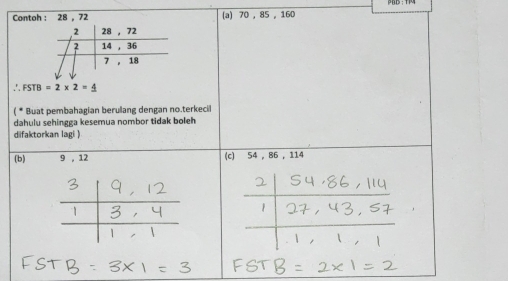 PBD : TP4
Contoh : 28 , 72
2 28 , 72
2 14 , 36
7 , 18
∴ FSTB = 2 x 2 = 4
( * Buat pembahagian berulang dengan no.terkecil
dahulu sehingga kesemua nombor tidak boleh
difaktorkan lagi )
(a) 70 , 85 , 160
(b) 9 , 12
3 9 , 12
1 3 , 4
1 , 1
FSTB = 3x1 = 3
(c) 54 , 86 , 114
2 54 , 86 , 114
1 27 , 43 , 57
1 , 1 , 1
FSTB = 2x1 = 2